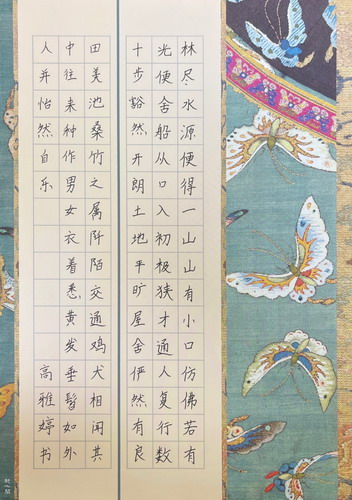 林尽水源便得一山山有小口仿佛若有
光便舍船从口入初极狭才通人复行数
十步豁然开朗土地平旷屋舍俨然有良
田美池桑竹之属阡陌交通鸡犬相闻其
中往来种作男女衣着悉黄发垂髫如外
人并怡然自乐
高雅婷书